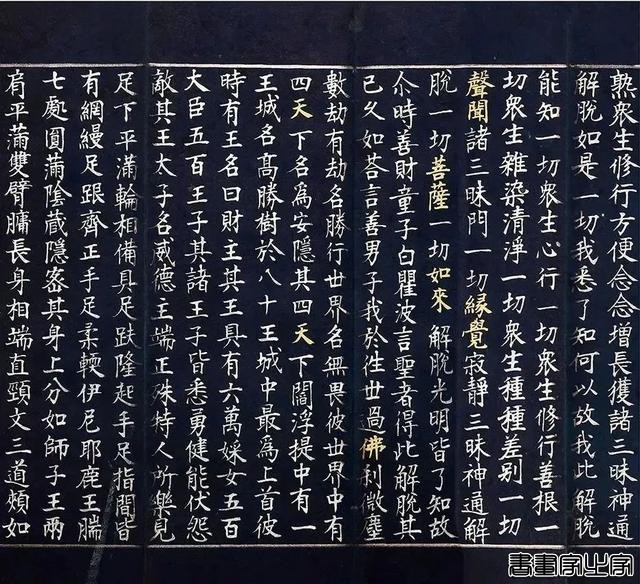 熟衆生修行方便念念增長獲諸三昧神通
解脫如是一切我悉了知何以故我此解脫
能知一切衆生心行一切衆生修行善根一
切衆生雜染清淨一切衆生種種差别一切
聲聞諸三昧門一切緣覺寂静三昧神通解
脫一切菩薩一切如來解脫光明皆了知故
尒時善財童子白瞿波言聖者得此解脫其
已久如荅言善男子我於徃世過佛刹微塵
數劫有劫名勝行世界名無畏彼世界中有
四天下名為安隱其四天下閻浮提中有一
王城名髙勝樹於八十王城中最爲上首彼
時有王名曰財主其王具有六萬婇女五百
大臣五百王子其諸王子皆悉勇健能伏怨
敵其王太子名威德主端正殊特人所樂見
足下平滿輪相備具足趺隆起手足指間皆
有網縵足跟齊正手足柔輭伊尼耶鹿王腨
七處圓滿陰藏隱密其身上分如師子王兩
肩平滿雙臂𦟛長身相端直頸文三道頰如
書畫家必字